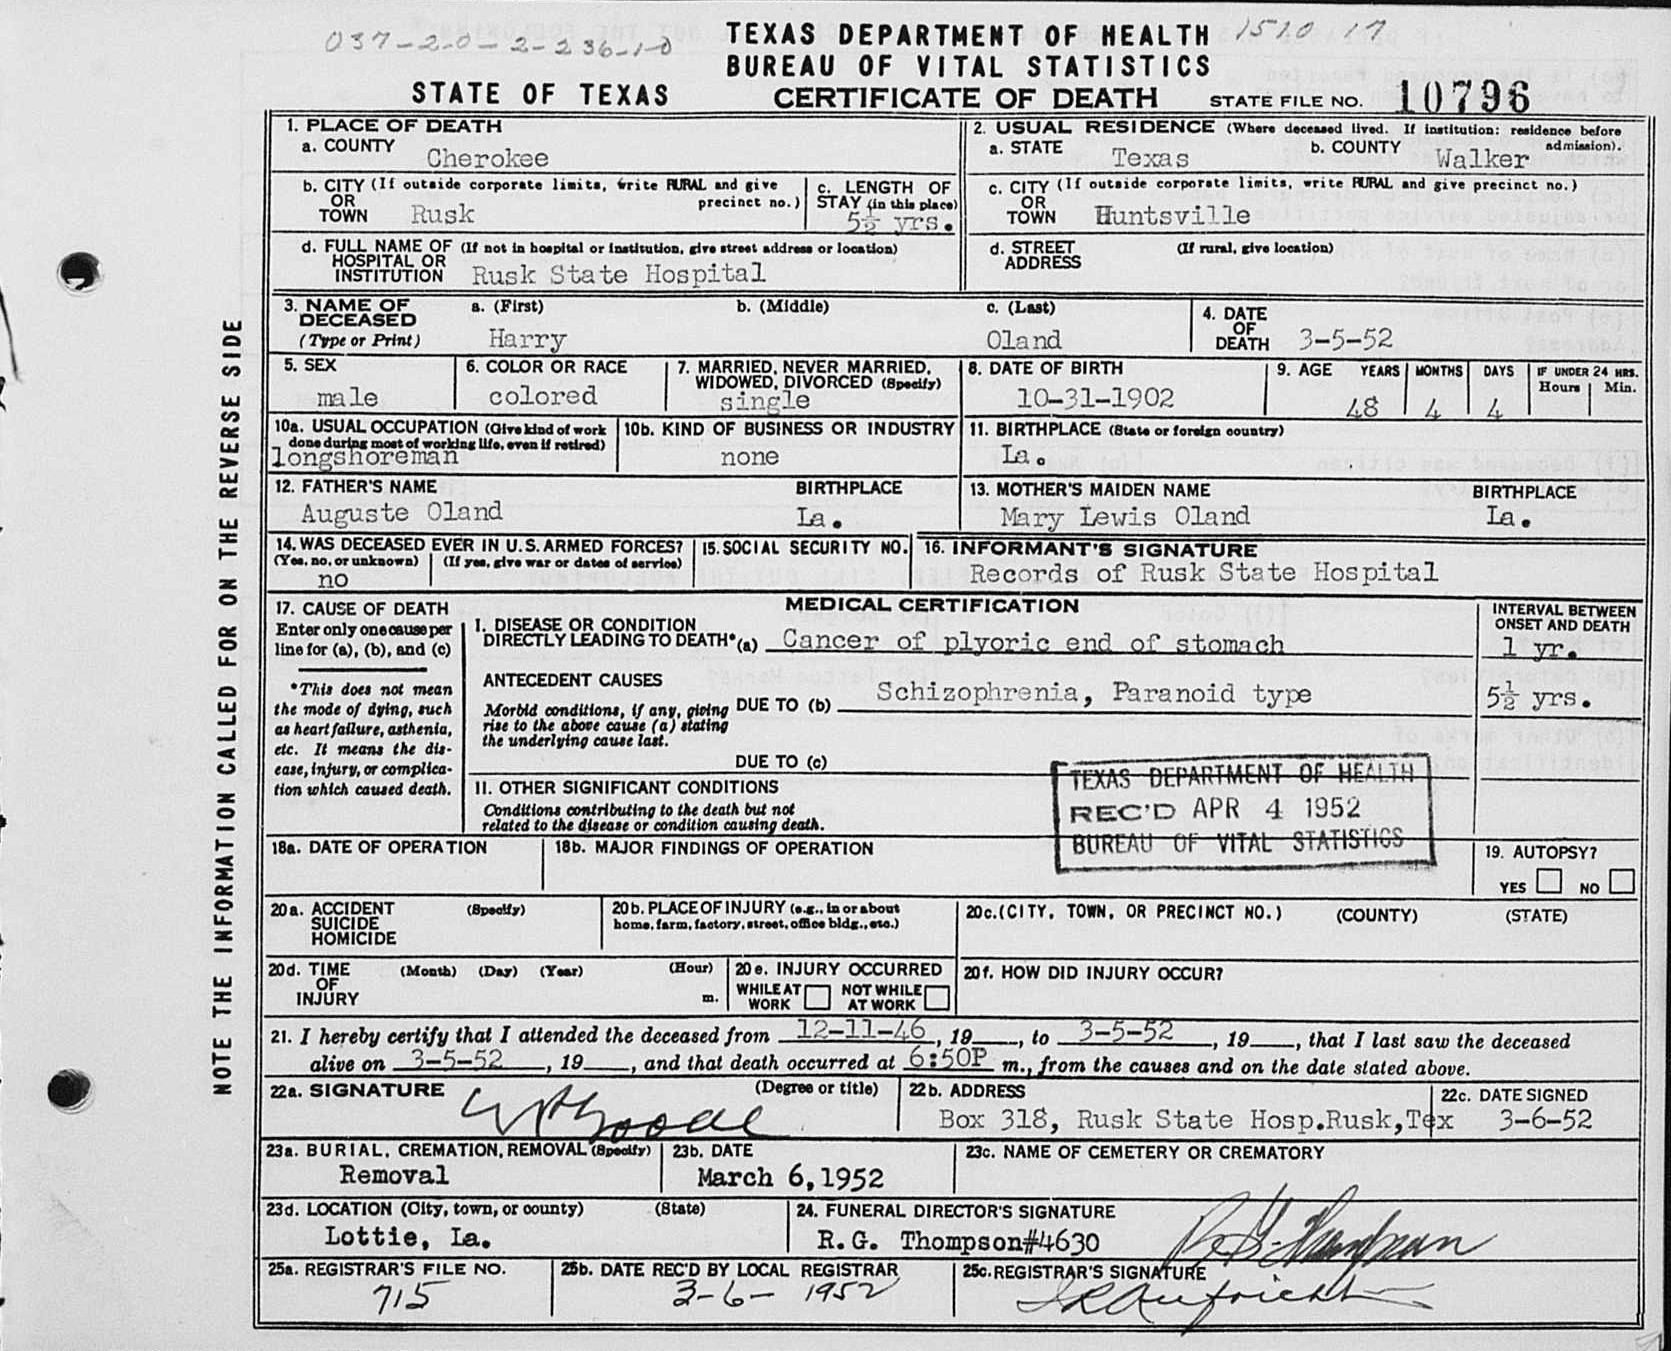 037-2-0-2-236-1-0
TEXAS DEPARTMENT OF HEALTH 1510 17
BUREAU OF VITAL STATISTICS
STATE OF TEXAS CERTIFICATE OF DEATH STATE FILE NO. 10796
1. PLACE OF DEATH
a. COUNTY Cherokee
2. USUAL RESIDENCE (Where deceased lived. If institution: residence before admission).
a. STATE Texas b. COUNTY Walker
b. CITY (If outside corporate limits, write RURAL and give precinct no.)
OR
TOWN Rusk
c. LENGTH OF
STAY (in this place)
5½ yrs.
c. CITY (If outside corporate limits, write RURAL and give precinct no.)
OR
TOWN Huntsville
d. FULL NAME OF (If not in hospital or institution, give street address or location)
HOSPITAL OR
INSTITUTION Rusk State Hospital
d. STREET (If rural, give location)
ADDRESS
3. NAME OF DECEASED
(Type or Print)
a. (First) b. (Middle) c. (Last)
Harry Oland
4. DATE
OF
DEATH 3-5-52
5. SEX
male
6. COLOR OR RACE
colored
7. MARRIED, NEVER MARRIED,
WIDOWED, DIVORCED (Specify)
single
8. DATE OF BIRTH
10-31-1902
9. AGE YEARS MONTHS DAYS IF UNDER 24 HRS.
Hours Min.
48 4 4
10a. USUAL OCCUPATION (Give kind of work
done during most of working life, even if retired)
longshoreman
10b. KIND OF BUSINESS OR INDUSTRY
none
11. BIRTHPLACE (State or foreign country)
La.
12. FATHER'S NAME BIRTHPLACE
Auguste Oland La.
13. MOTHER'S MAIDEN NAME BIRTHPLACE
Mary Lewis Oland La.
14. WAS DECEASED EVER IN U.S. ARMED FORCES?
(Yes, no, or unknown) (If yes, give war or dates of service)
no
15. SOCIAL SECURITY NO.
16. INFORMANT'S SIGNATURE
Records of Rusk State Hospital
17. CAUSE OF DEATH
Enter only one cause per
line for (a), (b), and (c)
*This does not mean
the mode of dying, such
as heart failure, asthenia,
etc. It means the dis-
ease, injury, or complica-
tion which caused death.
MEDICAL CERTIFICATION
INTERVAL BETWEEN
ONSET AND DEATH
I. DISEASE OR CONDITION
DIRECTLY LEADING TO DEATH*(a) Cancer of plyoric end of stomach 1 yr.
ANTECEDENT CAUSES
Morbid conditions, if any, giving
rise to the above cause (a) stating
the underlying cause last.
DUE TO (b) Schizophrenia, Paranoid type 5½ yrs.
DUE TO (c)
II. OTHER SIGNIFICANT CONDITIONS
Conditions contributing to the death but not
related to the disease or condition causing death.
TEXAS DEPARTMENT OF HEALTH
REC'D APR 4 1952
BUREAU OF VITAL STATISTICS
18a. DATE OF OPERATION
18b. MAJOR FINDINGS OF OPERATION
19. AUTOPSY?
YES NO
20a. ACCIDENT (Specify)
SUICIDE
HOMICIDE
20b. PLACE OF INJURY (e.g., in or about
home, farm, factory, street, office bldg., etc.)
20c. (CITY, TOWN, OR PRECINCT NO.) (COUNTY) (STATE)
20d. TIME (Month) (Day) (Year) (Hour)
OF
INJURY m.
20e. INJURY OCCURRED
WHILE AT WORK NOT WHILE AT WORK
20f. HOW DID INJURY OCCUR?
21. I hereby certify that I attended the deceased from 12-11-46, 19, to 3-5-52, 19, that I last saw the deceased
alive on 3-5-52, 19, and that death occurred at 6:50P m., from the causes and on the date stated above.
22a. SIGNATURE (Degree or title)
22b. ADDRESS
Box 318, Rusk State Hosp.Rusk,Tex
22c. DATE SIGNED
3-6-52
23a. BURIAL, CREMATION, REMOVAL (Specify)
Removal
23b. DATE
March 6,1952
23c. NAME OF CEMETERY OR CREMATORY
23d. LOCATION (City, town, or county) (State)
Lottie, La.
24. FUNERAL DIRECTOR'S SIGNATURE
R.G. Thompson#4630 R. G. Thompson
25a. REGISTRAR'S FILE NO.
715
25b. DATE REC'D BY LOCAL REGISTRAR
3-6-1952
25c. REGISTRAR'S SIGNATURE
NOTE THE INFORMATION CALLED FOR ON THE REVERSE SIDE